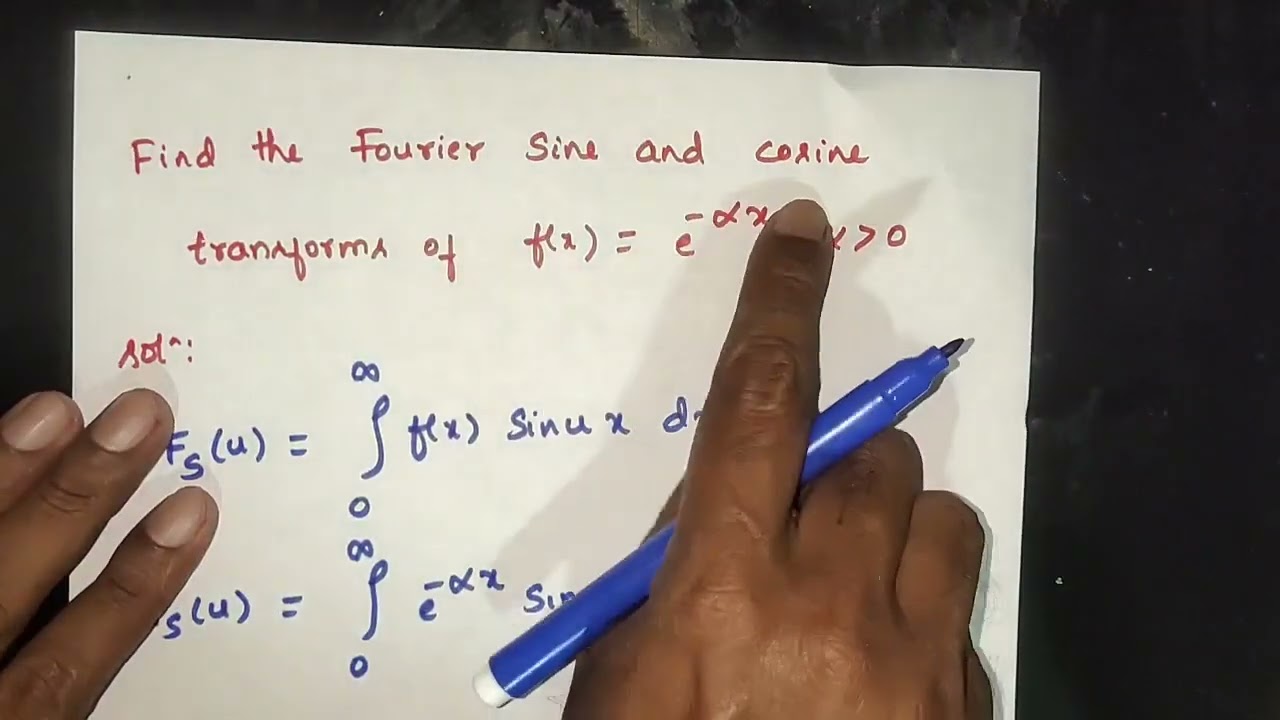 Find the Fourier Sine and cosine
transforms of f(x) = e^{-αx} >0
solⁿ:
F_S(u) = ∫_0^∞ f(x) Sinux
_S(u) = ∫_0^∞ e^{-αx}